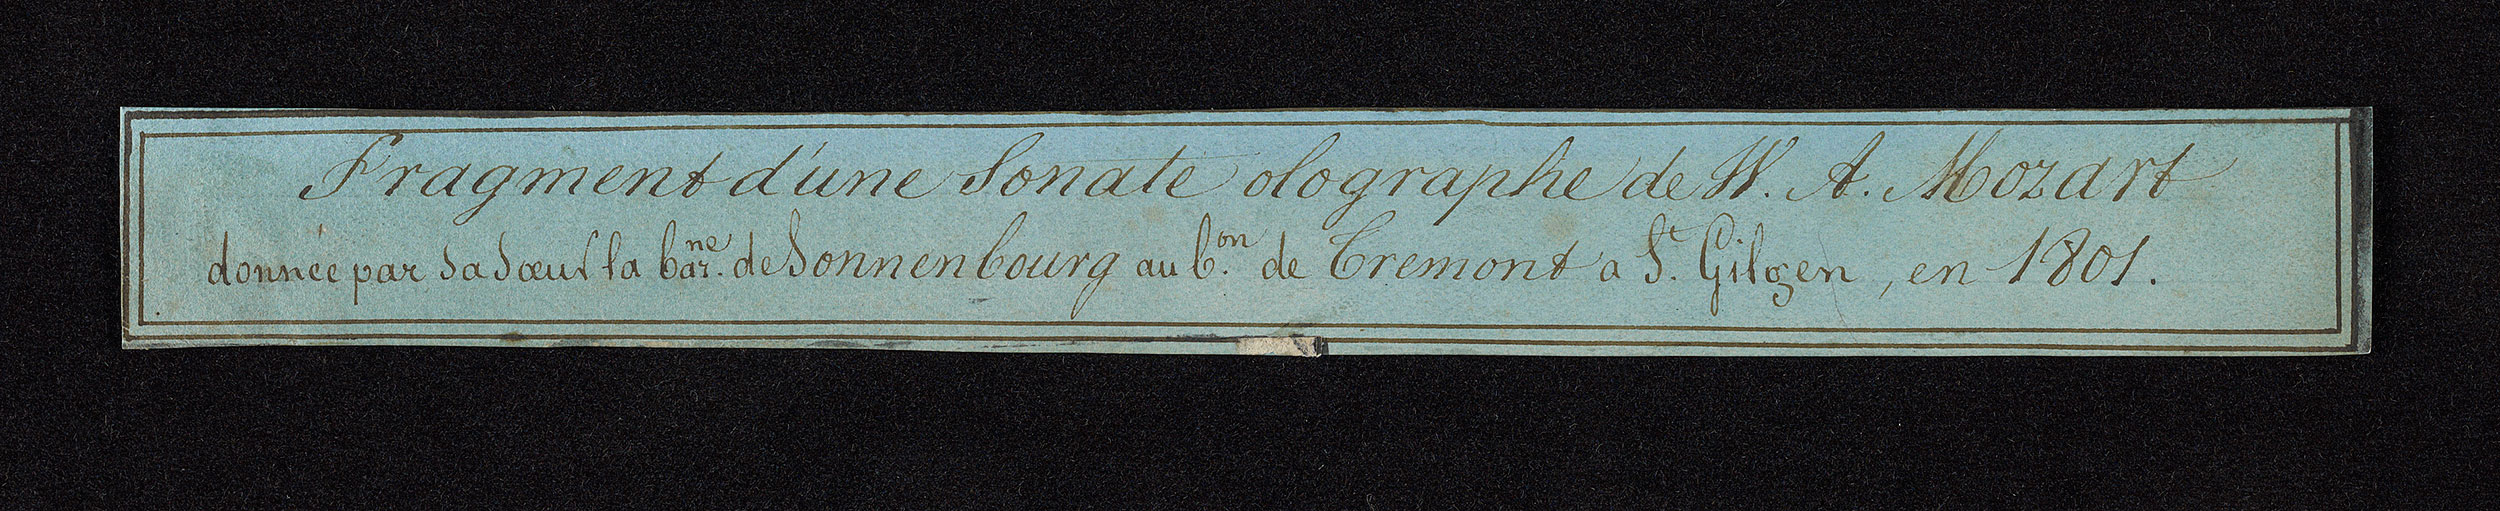 Fragment d'une Sonate olographe de W. A. Mozart
donnée par Sa Sœur la bar.ne de Sonnenbourg au b.on de Tremont a St. Gilgen, en 1801.